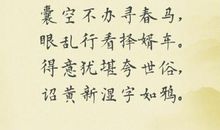 囊空不办寻春马，
眼乱行看择婿车。
得意犹堪夸世俗，
诏黄新湿字如鸦。